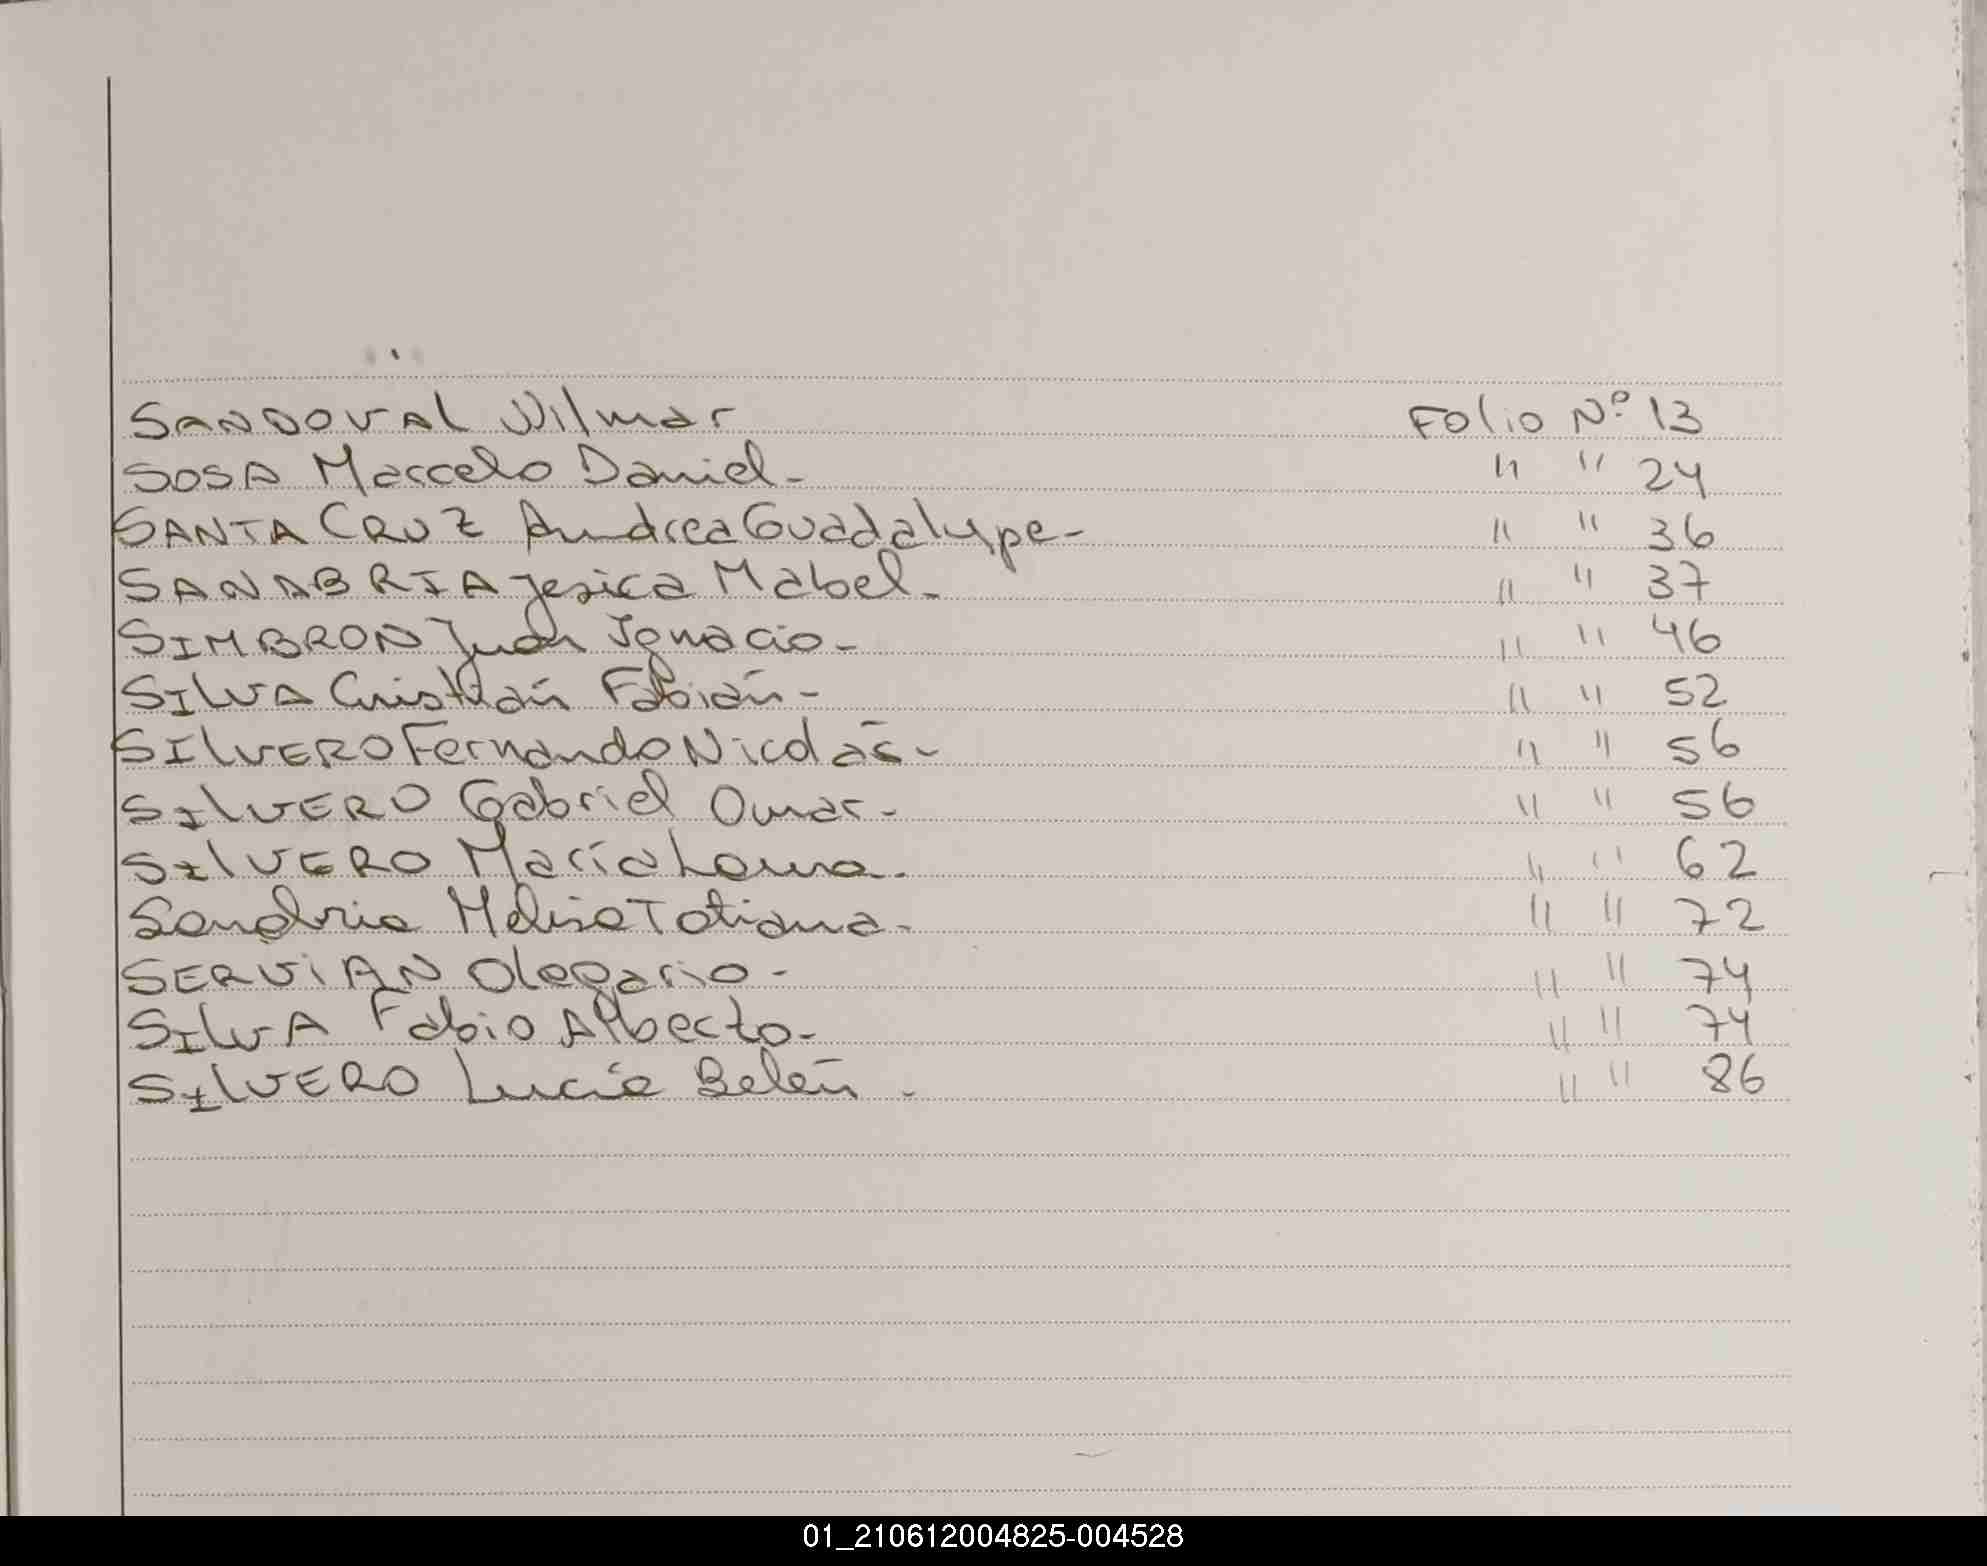 SANDOVAL Wilmar Folio Nº 13
SOSA Marcelo Daniel- " " 24
SANTA CRUZ Andrea Guadalupe- " " 36
SANABRIA Jesica Mabel- " " 37
SIMBRON Juan Ignacio- " " 46
SILVA Cristián Fabián- " " 52
SILVERO Fernando Nicolás- " " 56
SILVERO Gabriel Omar- " " 56
SILVERO María Laura. " " 62
Melisa Tatiana- " " 72
SERVIAN Olegario- " " 74
SILVA Fabio Alberto- " " 74
SILVERO Lucía Belén - " " 86
01_210612004825-004528